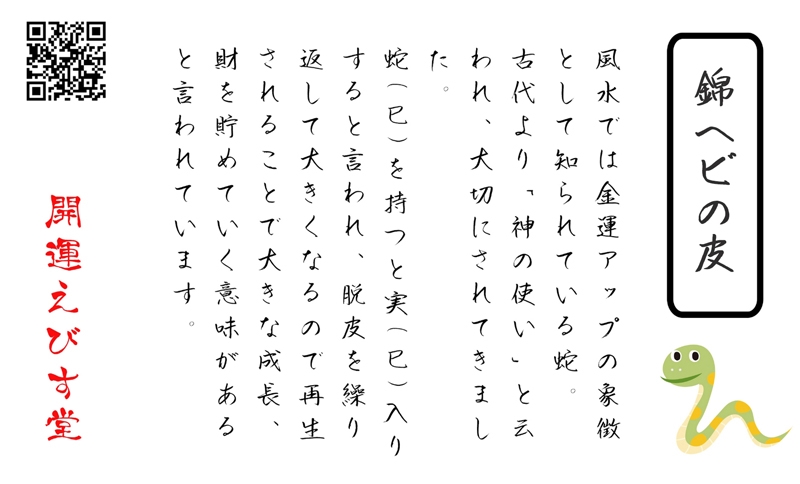 錦ヘビの皮
風水では金運アップの象徴
として知られている蛇。
古代より「神の使い」と云
われ、大切にされてきまし
た。
蛇(巳)を持つと実(巳)入り
すると言われ、脱皮を繰り
返して大きくなるので再生
されることで大きな成長、
財を貯めていく意味がある
と言われています。
開運えびす堂